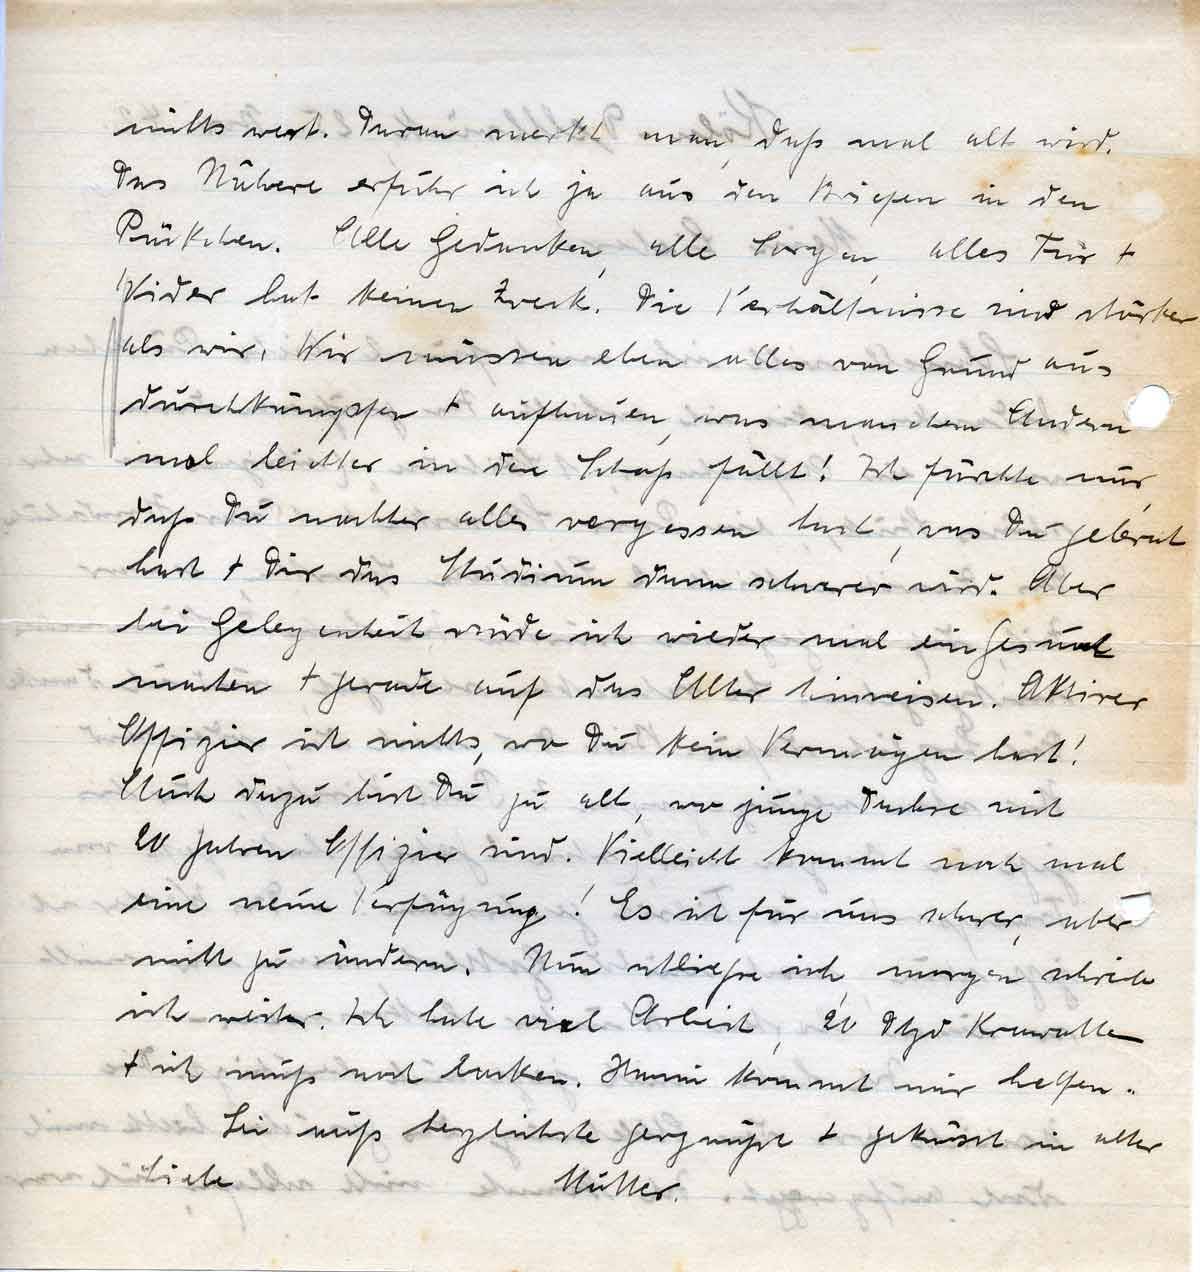 nichts wert. Daran merkt man, daß mal alt wird.
Das Nähere erfuhr ich ja aus den Briefen in den
Päckchen. Alle Gedanken, alle Sorgen, alles Für +
Wider hat keinen Zweck. Die Verhältnisse sind stärker
als wir. Wir müssen eben alles von Grund aus
durchkämpfen + aufbauen, was manchem Andern
mal leichter in den Schoß fällt! Ich fürchte nur,
daß Du nachher alles vergessen hast, was Du gelernt
hast + Dir das Studium dann schwerer wird. Aber
bei Gelegenheit würde ich wieder mal ein Gesuch
machen + gerade auf das Alter hinweisen. Aktiver
Offizier ist nichts, wo Du kein Vermögen hast!
Auch dazu bist Du zu alt, wo junge Dachse mit
20 Jahren Offizier sind. Vielleicht kommt noch mal
eine neue Verfügung! Es ist für uns schwer, aber
nicht zu ändern. Nun schließe ich, morgen schreibe
ich weiter. Ich habe viel Arbeit, 20 Dtzd Krawatten
+ ich muß noch backen. kommt mir helfen.
Sei herzlichste gegrüßt + geküsst in alter
Liebe Mutter.